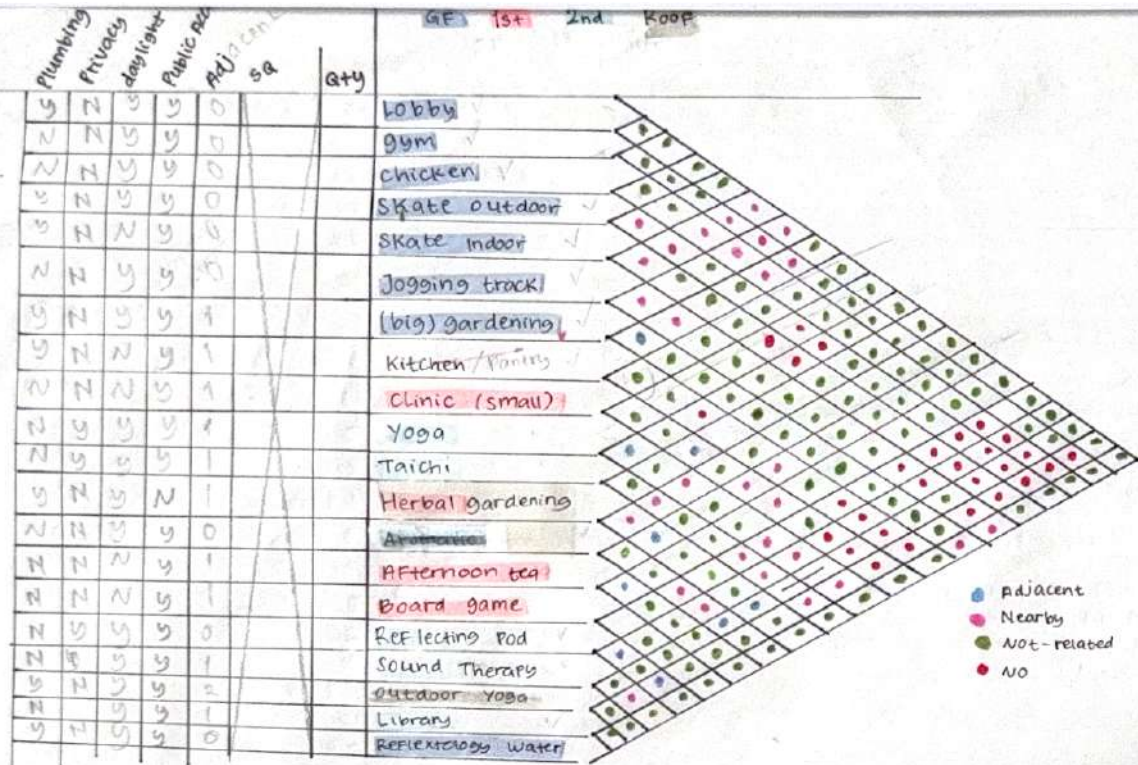 GF 1st 2nd Roof
Plumbing Privacy daylight Public Adjacent SQ Q+y
y N y y 0 Lobby
N N y y 0 gym
N N y y 0 chicken
y N y y 0 Skate outdoor
y N N y 0 Skate Indoor
N N y y 0 Jogging track
y N y y 1 (big) gardening
y N N y 1 Kitchen / Pantry
N N N y 1 Clinic (small)
N y y y 1 Yoga
N y y y 1 Taichi
y N y N 1 Herbal gardening
N N y y 0
N N N y 1 AFternoon tea
N N N y 1 Board game
N y y y 0 ReFlecting Pod
N y y 1 Sound Therapy
y N y y 2 outdoor Yoga
N y y 1 Library
y N y y 0 ReFlextology Water
Adjacent
Nearby
Not-related
NO